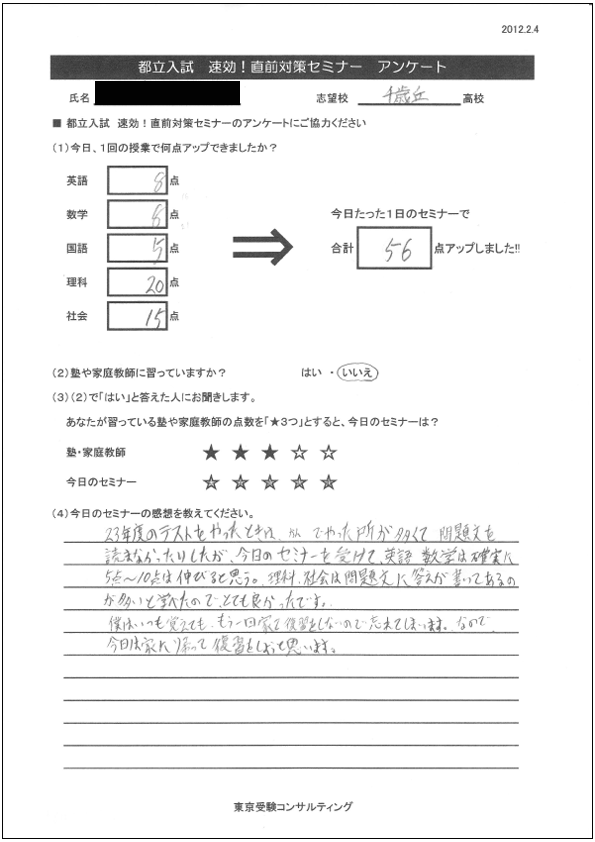 2012.2.4
都立入試　速効！直前対策セミナー　アンケート
氏名　志望校　千歳丘　高校
■ 都立入試　速効！直前対策セミナーのアンケートにご協力ください
(1)今日、1回の授業で何点アップできましたか？
英語　8　点
数学　8　点
国語　5　点
理科　20　点
社会　15　点
今日たった1日のセミナーで
合計　56　点アップしました!!
(2)塾や家庭教師に習っていますか？　はい ・ いいえ
(3)(2)で「はい」と答えた人にお聞きします。
あなたが習っている塾や家庭教師の点数を「★3つ」とすると、今日のセミナーは？
塾・家庭教師　★ ★ ★ ☆ ☆
今日のセミナー　★ ★ ★ ★ ★
(4)今日のセミナーの感想を教えてください。
23年度のテストをやったときは、でやった所が多くて 問題文を
読まなかったりしたが、今日のセミナーを受けて、英語 数学は確実に
5点～10点は伸びると思う。理科、社会は問題文に答えが書いてあるの
が多いと学べたので、とても良かったです。
僕はいつも覚えても、もう一回家で復習をしないので忘れてしまいます。なので、
今日は家に帰って復習をしようと思います。
東京受験コンサルティング